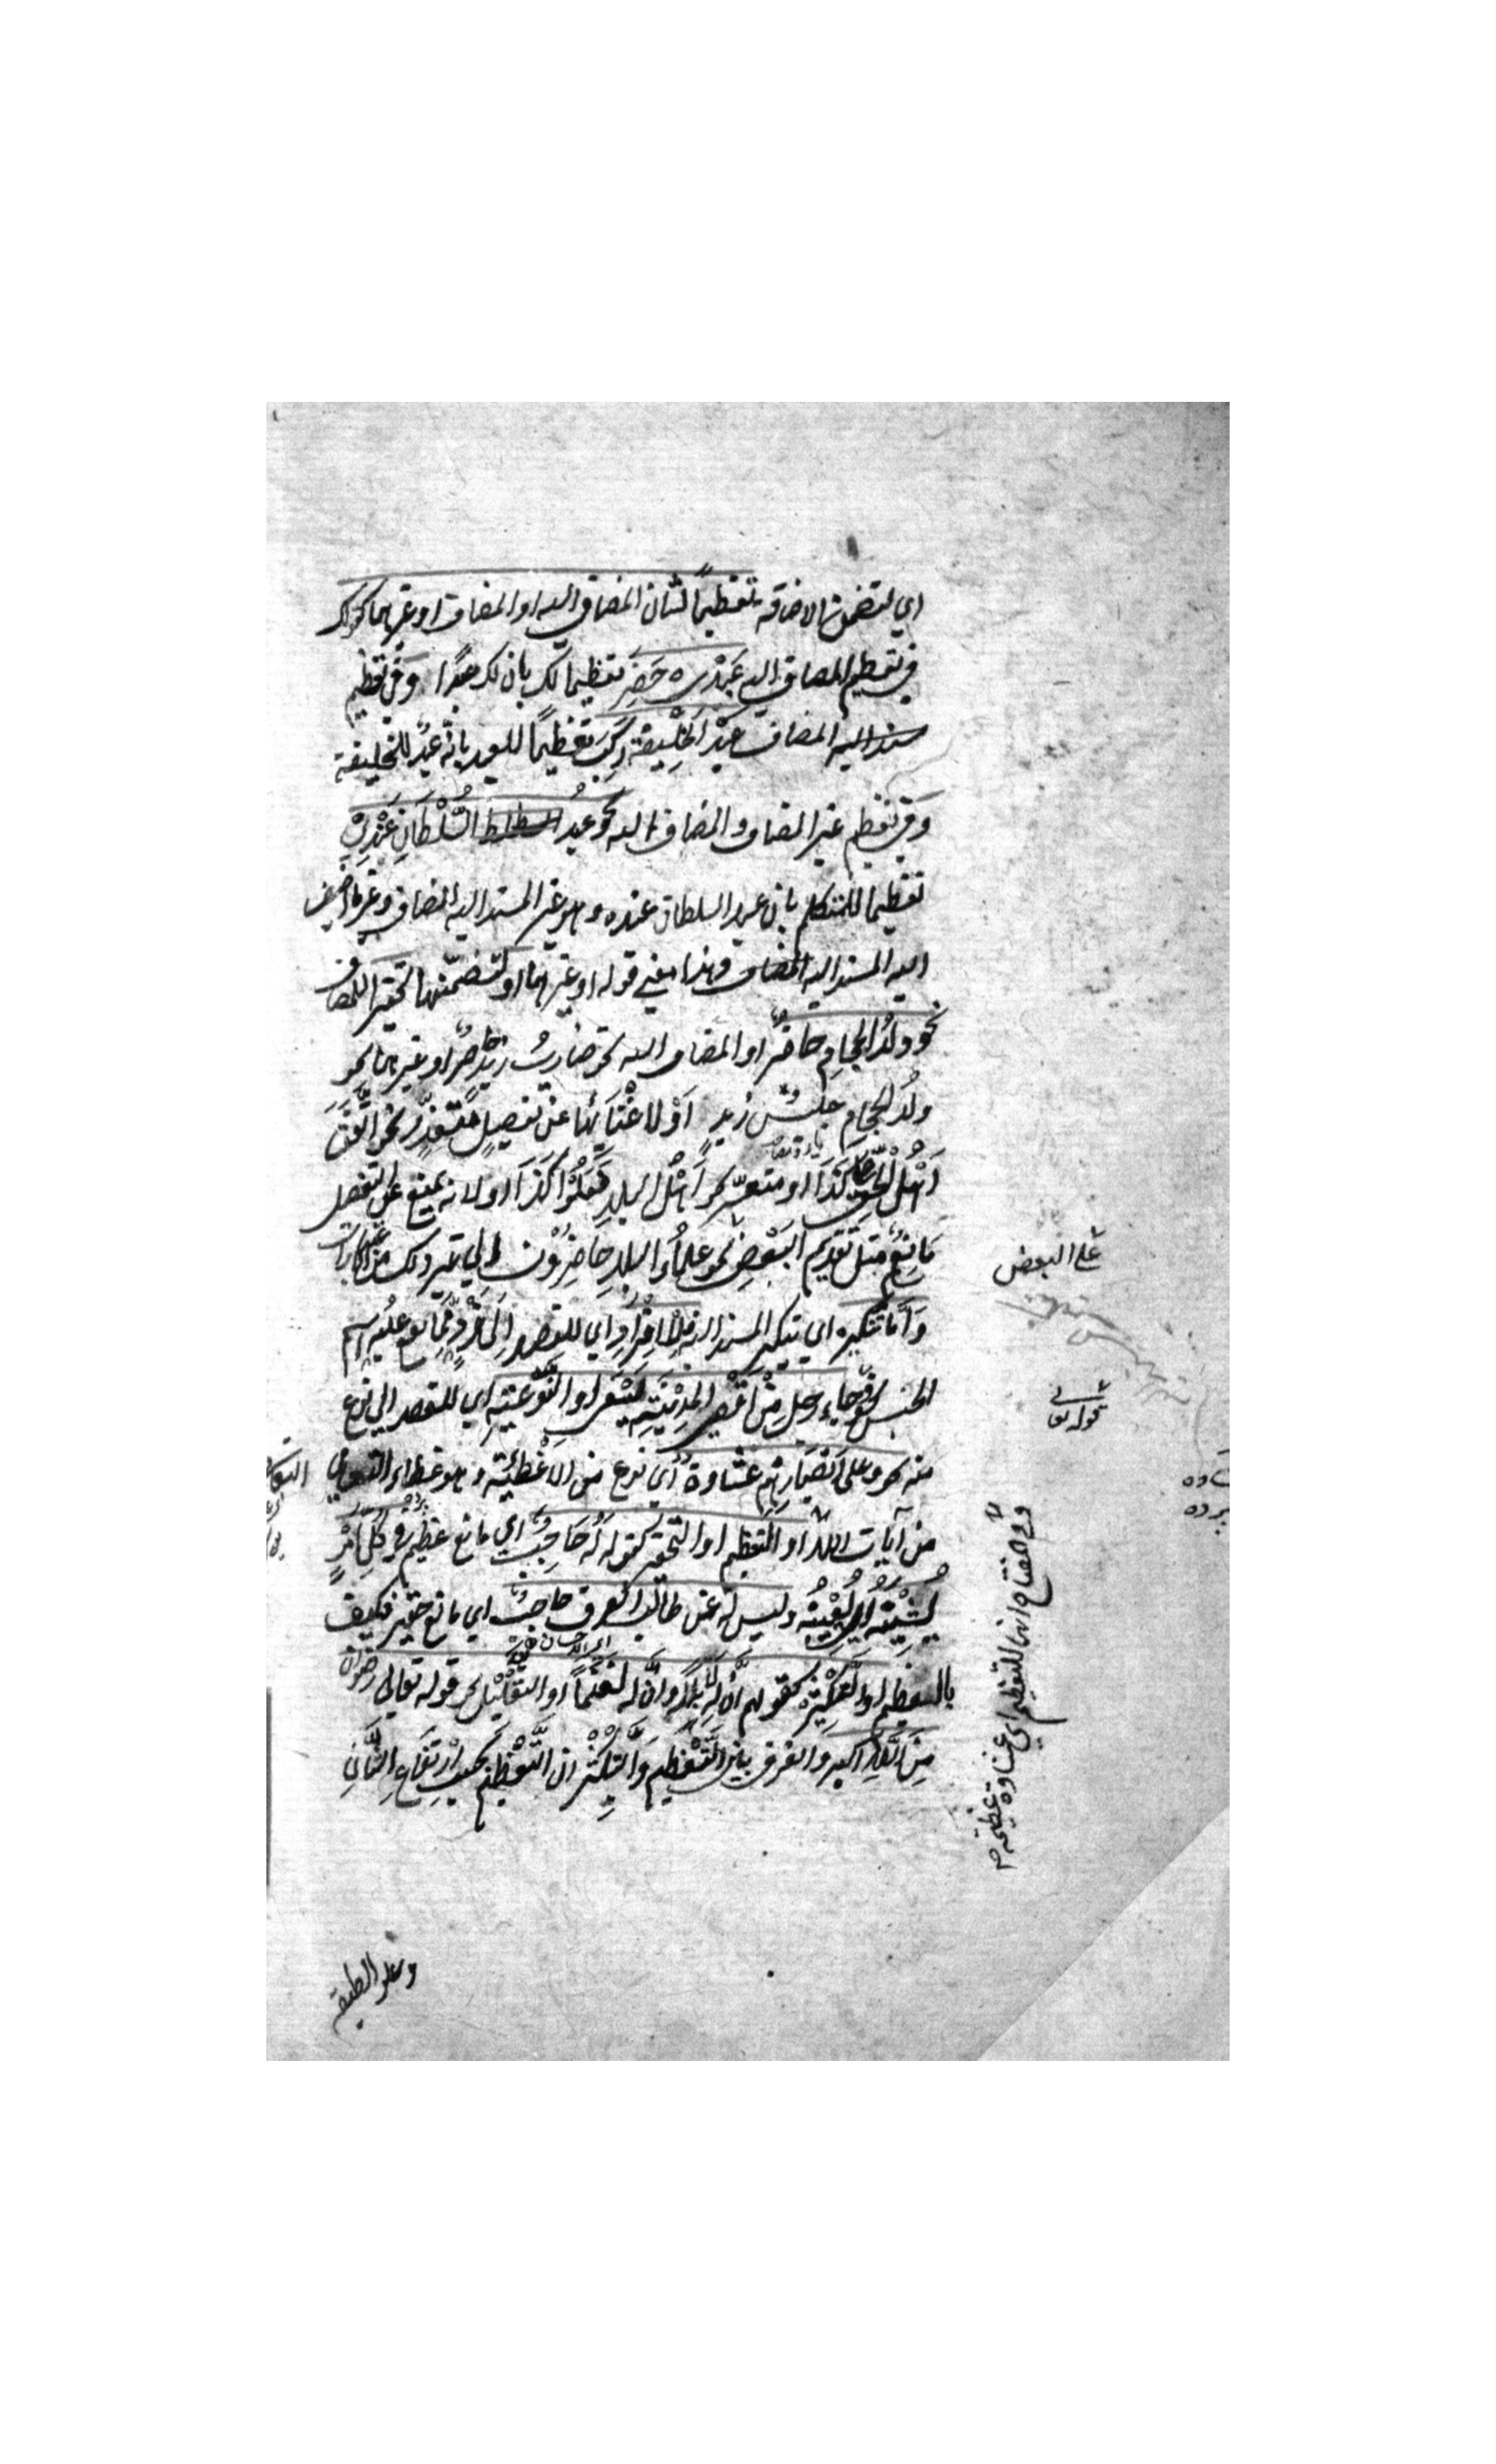 اي لتضمن الاضافة تعظيماً لشان المضاف اليه او المضاف او غيرهما كقولك
في تعظيم المضاف اليه عَبْدِي حَضَرَ تعظيما لك بان لك عبدًا وَفي تعظيم
المضاف عبد الخَلِيْفَة رَكِبَ تعظيمًا للعبد بانه عبدٌ للخليفة
وَفي تعظيم غير المضاف و المضاف اليه نحو عبدُ السُّلْطَانِ عِنْدِيْ
تعظيما للمتكلم بان عبد السلطان عنده وهو غير المسند اليه المضاف وغير ما اضيف
اليه المسند اليه المضاف وهذا معنى قوله او غيرهما او لتضمّنها تحقيرا للمضاف
نحو ولدُ الحجامِ حاضرٌ او المضاف اليه نحو ضاربُ زيدٍ حاضرٌ او غيرهما نحو
ولدُ الحجامِ جليسُ زيدٍ اَوْ لاغْنَائِها عن تفصيلٍ متعذّرٍ نحو اتَّفَقَ
اَهْلُ الحقِّ على كَذَا او متعسّر نحو اَهْلُ البلدِ فَعَلُوْا كَذَا او لانه يمنع عن التفصيل
مَانِعٌ مثل تقديم البَعْضِ نحو علماءُ البلدِ حَاضِرُوْن الي غير ذلك من الاعتبارات
وَاَمَّا تنكيره اي تنكير المسند اليه فللافْرَادِ اي للقصد اِلَى فَرْدٍ مِمَّا يقع عليه اسم
الجنس نحو وجاء رجل مِنْ اَقْصَى المَدِيْنَةِ يَسْعَى او النَّوْعِيَّةِ اي للقصد الي نوع
منه نحو وعلى اَبْصَارِهِمْ غشاوة اي نوع من الاغْطِيَةِ وهو غطاء التعامي
من آيات اللّه او التعظيم او التحقير كقوله لَهُ حَاجِبٌ اي مانع عظيم في كُلِّ اَمْرٍ
يَشِيْنُه وليس لَه عن طالب العرف حاجبٌ اي مانع حقير فكيف
بالعظيم او التَّكْثِيْر كقولهم اِنَّ لَهُ لَاِبِلاً وَاِنَّ لَه لَغَنَمًا او التَّقْلِيْل نحو قوله تعالى رضوان
مِنَ اللّهِ اكبر والفرق بين التَّعْظِيْم وَالتَّكْثِيْر ان التَّعْظِيْمَ بحسب ارْتِفَاعِ الشَّانِ
على البعض
قوله تعا
وفي المفتاح انها للتعظيم اي غشاوة عظيمة
وعلو الطبقة